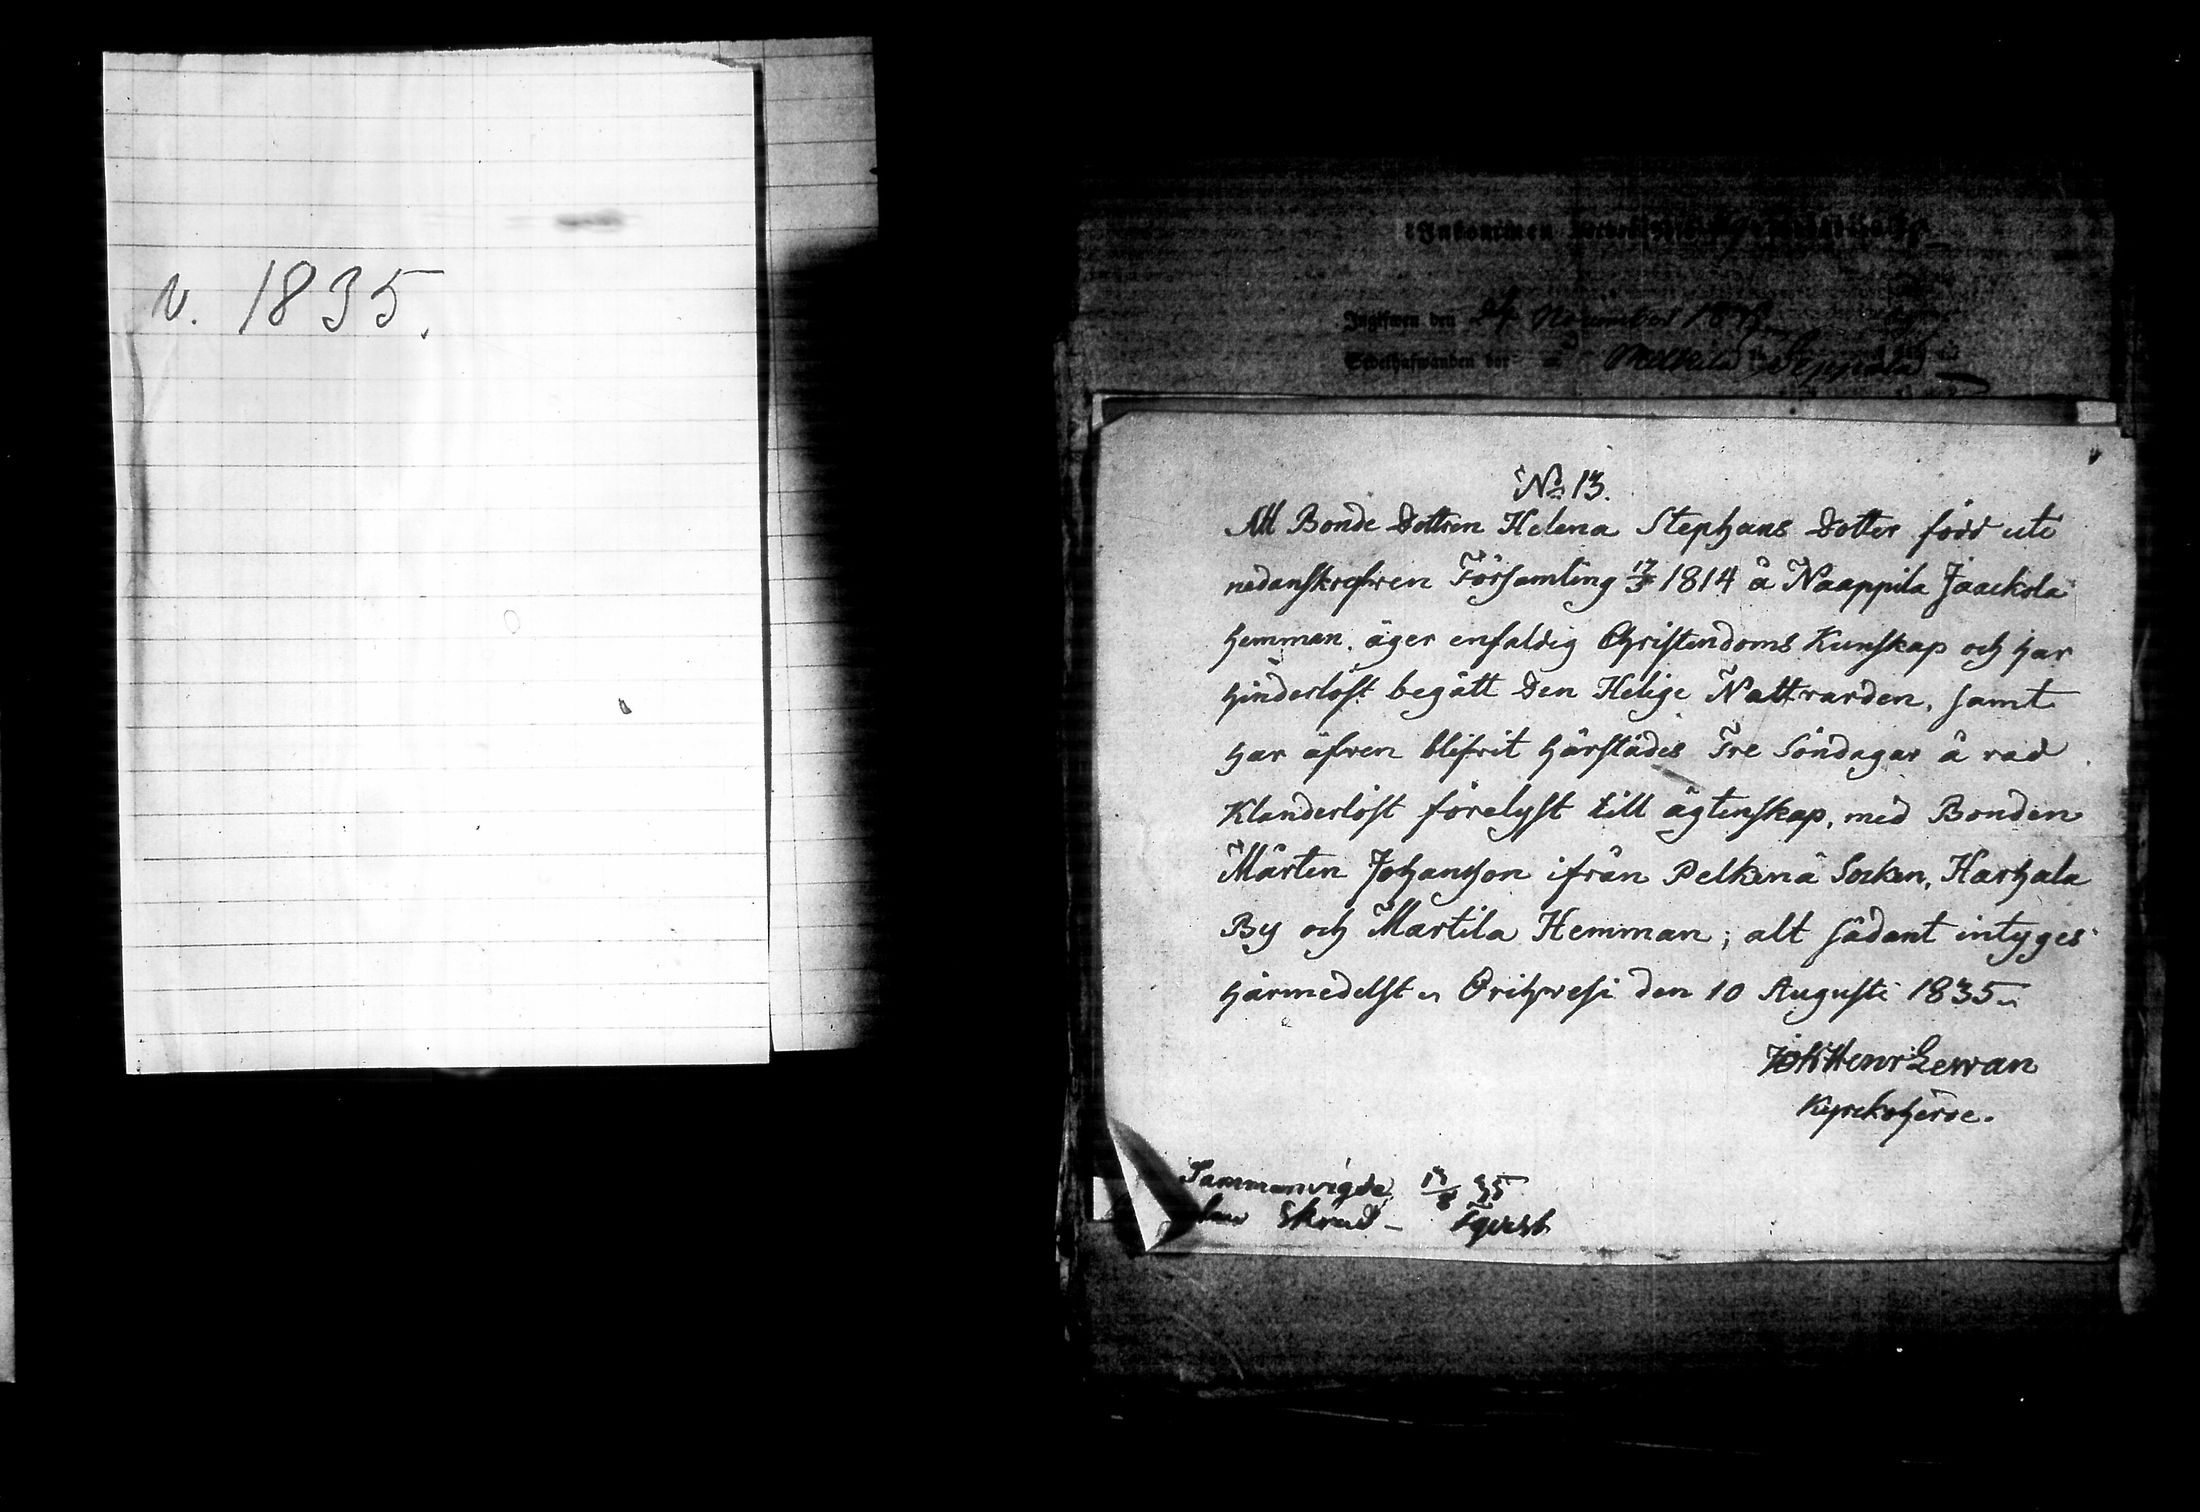 v. 1835.
Ingifwen den 24 November 18
No 13.
Att Bonde Dottren Helena Stephans Dotter född uti
nedanskrefven Församling 17/3 1814 å Naappila Jaackola
hemman, äger enfaldig Christendoms Kunskap och har
hinderlöst begått Den Helige Nattvarden, samt
har äfven blifvit härstädes Tre Söndagar å rad
Klanderlöst förelyst till ägtenskap, med Bonden
Mårten Johansson ifrån Pelkenä Socken, Harhala
By och Martila Hemman; alt sådant intyges
härmedelst Orihvesi den 10 Augusti 1835
Joh Henr Levan
Kyrckoherde.
Sammanvigde 35